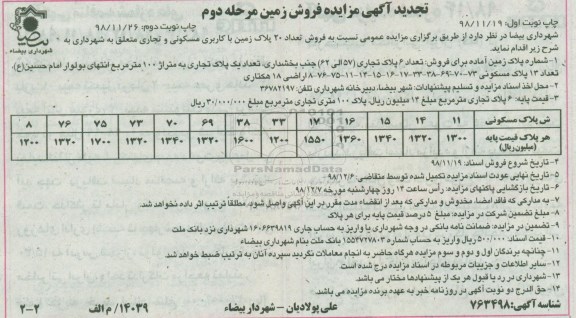 تجدید آگهی مزایده فروش زمین مرحله دوم
چاپ نوبت اول: ۹۸/۱۱/۱۹
چاپ نوبت دوم: ۹۸/۱۱/۲۶
شهرداری بیضاء
شهرداری بیضا در نظر دارد از طریق برگزاری مزایده عمومی نسبت به فروش تعداد ۲۰ پلاک زمین با کاربری مسکونی و تجاری متعلق به شهرداری به شرح زیر اقدام نماید.
۱- شماره پلاک زمین آماده برای فروش: تعداد ۶ پلاک تجاری (۵۷ الی ۶۲) جنب بخشداری، تعداد یک پلاک تجاری به متراژ ۱۰۰ مترمربع انتهای بولوار امام حسین(ع)،
تعداد ۱۳ پلاک مسکونی ۷۳-۷۰-۶۹-۳۸-۳۳-۱۷-۱۶-۱۵-۱۴-۱۱-۷۵-۷۶-۸ اراضی ۱۸ هکتاری
۲- محل اخذ اسناد مزایده و تسلیم پیشنهادات: شهر بیضا، دبیرخانه شهرداری تلفن: ۳۶۷۸۲۱۹۷
۳- قیمت پایه: ۶ پلاک تجاری مترمربع مبلغ ۱۲ میلیون ریال، پلاک ۱۰۰ متری تجاری مترمربع مبلغ ۳۰/۰۰۰/۰۰۰ ریال
ش پلاک مسکونی ۱۱ ۱۴ ۱۵ ۱۶ ۱۷ ۳۳ ۳۸ ۶۹ ۷۰ ۷۳ ۷۵ ۷۶ ۸
هر پلاک قیمت پایه (میلیون ریال) ۱۳۰۰ ۱۳۲۰ ۱۳۴۰ ۱۳۶۰ ۱۵۵۰ ۱۲۰۰ ۱۶۰۰ ۱۳۲۰ ۱۳۴۰ ۱۳۲۰ ۱۷۰۰ ۱۳۲۰ ۱۲۰۰
ParsNamadData
۴- تاریخ شروع فروش اسناد: ۹۸/۱۱/۱۹
۵- تاریخ نهایی عودت اسناد مزایده تکمیل شده توسط متقاضی: ۹۸/۱۲/۶
۶- تاریخ بازگشایی پاکتهای مزایده: رأس ساعت ۱۲ روز چهارشنبه مورخه ۹۸/۱۲/۷
۷- به مدارکی که فاقد امضا، مخدوش و مدارکی که بعد از انقضاء مدت مقرر در این آگهی واصل شود، مطلقا ترتیب اثر داده نخواهد شد.
۸- مبلغ تضمین شرکت در مزایده: مبلغ ۵ درصد قیمت پایه برای هر پلاک
۹- تضمین در مزایده: ضمانت نامه بانکی در وجه شهرداری یا واریز به حساب جاری ۱۶۰۶۶۳۹۸۱۹ شهرداری نزد بانک ملت
۱۰- قیمت اسناد: ۵۰۰/۰۰۰ ریال واریز به حساب شماره ۱۵۵۳۷۲۷۸۰۳ بانک ملت بنام شهرداری بیضاء
۱۱- چنانچه برندگان اول و دوم و سوم مزایده هرگاه حاضر به انجام معاملات نگردید سپرده آنان به ترتیب ضبط خواهد شد.
۱۲- سایر اطلاعات و جزییات مربوطه در اسناد مزایده درج شده است
۱۳- شهرداری در رد یا قبول هر یک از پیشنهادها مختار می باشد.
۱۴- حق الدرج دو نوبت آگهی در روزنامه خبر به عهده برنده مزایده می باشد.
شناسه آگهی: ۷۶۳۴۹۸
علی پولادیان - شهردار بیضاء
۱۴۰۳۹/ م الف
۲-۲